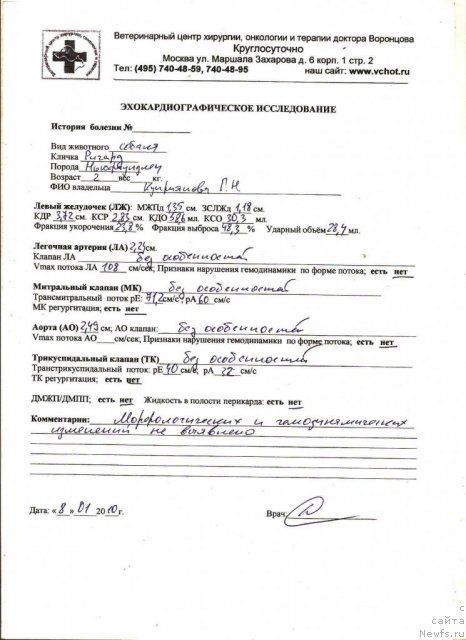 Ветеринарный центр хирургии, онкологии и терапии доктора Воронцова
Круглосуточно
Москва ул. Маршала Захарова д. 6 корп. 1 стр. 2
Тел: (495) 740-48-59, 740-48-95 наш сайт: www.vchot.ru
ЭХОКАРДИОГРАФИЧЕСКОЕ ИССЛЕДОВАНИЕ
История болезни №
Вид животного собака
Кличка Ричард
Порода Ньюфаундленд
Возраст 2 вес кг.
ФИО владельца Куприянова Г.Н
Левый желудочек (ЛЖ): МЖПд 1,35 см. ЗСЛЖд 1,18 см.
КДР 3,72 см. КСР 2,83 см. КДО 58,6 мл. КСО 30,3 мл.
Фракция укорочения 23,8 % Фракция выброса 48,3 % Ударный объём 28,4 мл.
Легочная артерия (ЛА) 2,24 см.
Клапан ЛА без особенностей
Vmax потока ЛА 108 см/сек; Признаки нарушения гемодинамики по форме потока: есть нет
Митральный клапан (МК) без особенностей
Трансмитральный поток pE: 71,2 см/с pA 60 см/с
МК регургитация: есть нет
Аорта (АО) 2,49 см; АО клапан: без особенностей
Vmax потока АО см/сек; Признаки нарушения гемодинамики по форме потока: есть нет
Трикуспидальный клапан (ТК) без особенностей
Транстрикуспидальный поток: pE 40 см/с, pA 22 см/с
ТК регургитация: есть нет
ДМЖП/ДМПП: есть нет Жидкость в полости перикарда: есть нет
Комментарии: Морфологических и гемодинамических
изменений не выявлено
Дата: «8» 01 2010г. Врач:
с
сайта
Newfs.ru